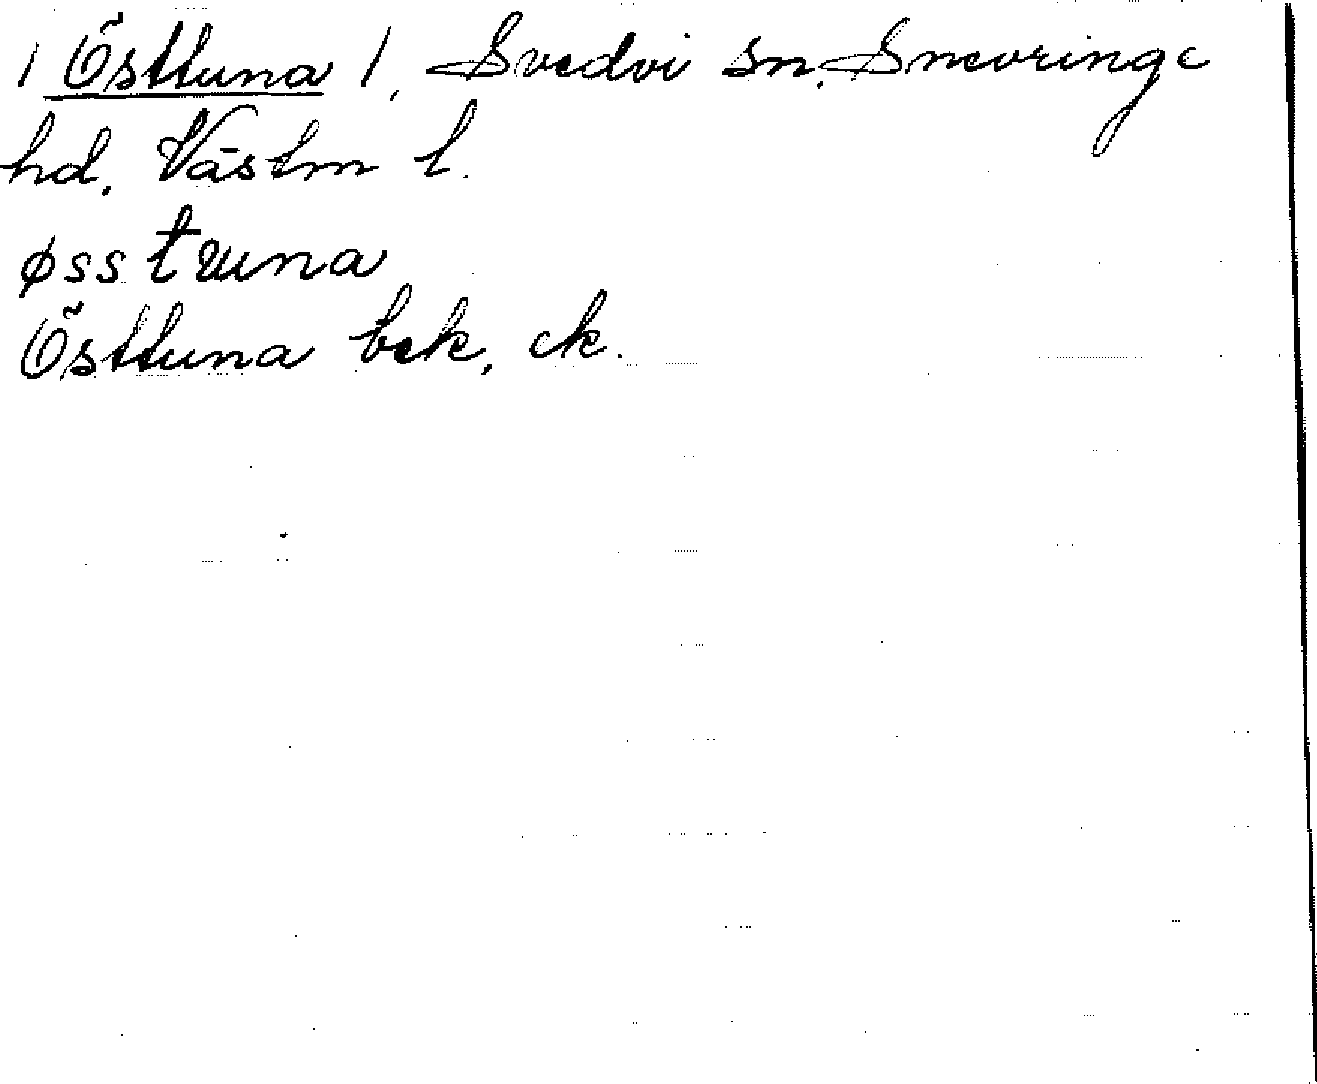 / Östtuna /, Svedvi sn, Snevringe
hd, Västm l.
øsstuna
Östtuna bek, ek.